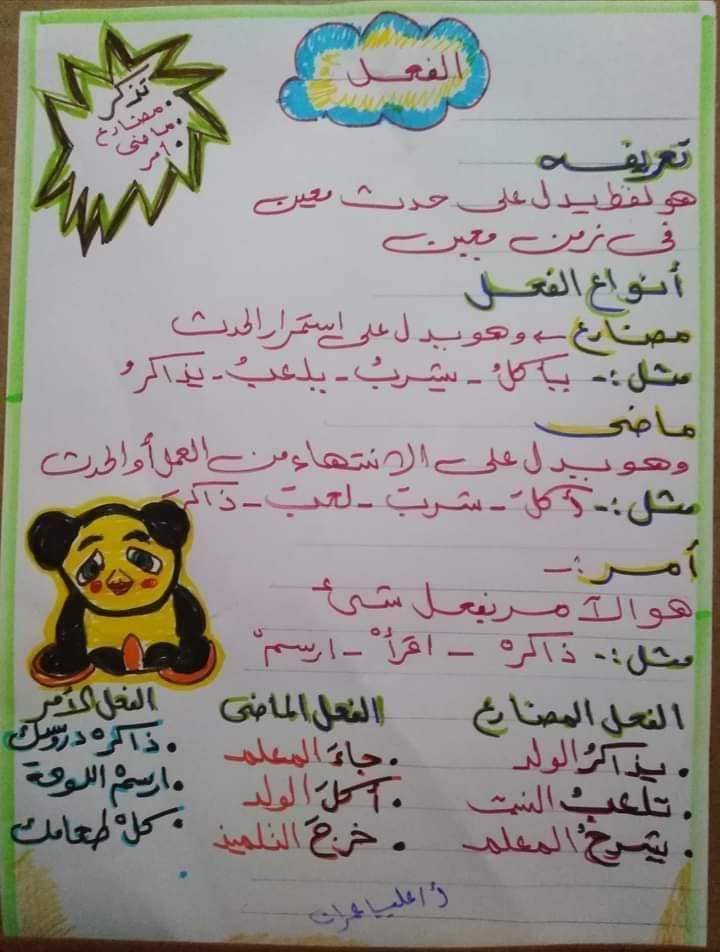 الفعل
تذكر
. مضارع
. ماضى
. أمر
تعريفه
هو لفظ يدل على حدث معين
فى زمن معين
أنواع الفعل
مضارع ← وهو يدل على استمرار الحدث
مثل :- يأكلُ - يشربُ - يلعبُ - يذاكرُ
ماضى
وهو يدل على الانتهاء من العمل أو الحدث
مثل :- أكلَ - شربَ - لعبَ - ذاكرَ
أمر :-
هو الآمر بفعل شىء
مثل :- ذاكرْ - اقرأْ - ارسمْ
الفعل المضارع
. يذاكرُ الولد
. تلعبُ البنت
. يشرحُ المعلم
الفعل الماضى
. جاءَ المعلم
. أكلَ الولد
. خرجَ التلميذ
الفعل الأمر
. ذاكرْ دروسك
. ارسمْ اللوحة
. كلْ طعامك